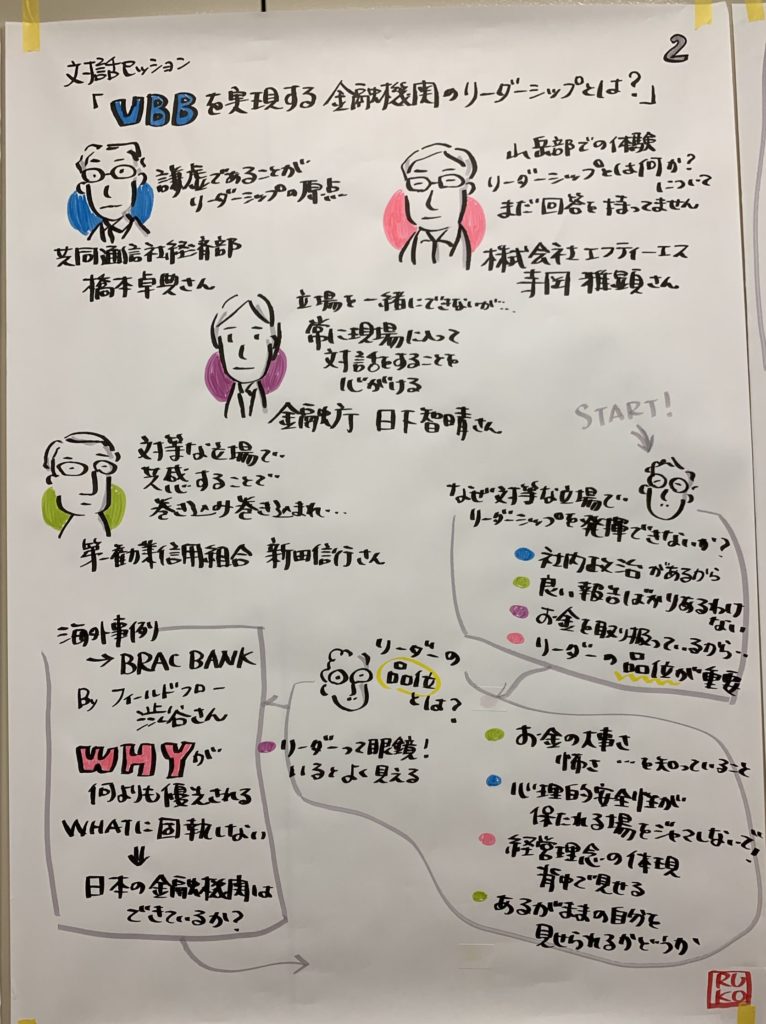 2
対話セッション
「VBBを実現する金融機関のリーダーシップとは?」
謙虚であることが
リーダーシップの原点
共同通信社経済部
橋本卓典さん
山岳部での体験
リーダーシップとは何か?
について
まだ回答を持ってません
株式会社エフティーエス
寺岡雅顕さん
立場を一緒にできないが…
常に現場に入って
対話をすることを
心がける
金融庁 日下智晴さん
対等な立場で…
共感することで
巻き込み巻き込まれ…
第一勧業信用組合 新田信行さん
START!
なぜ対等な立場で…
リーダーシップを発揮できないか?
社内政治があるから
良い報告ばかりあるわけ
ない
お金を取り扱っているから…
リーダーの品位が重要
リーダーの
品位
とは?
リーダーって眼鏡!
いるとよく見える
お金の大事さ
怖さ …を知っていること
心理的安全性が
保たれる場をジャマしないで!
経営理念の体現
背中で見せる
あるがままの自分を
見せられるかどうか
海外事例
→BRAC BANK
By フィールドフロー
渋谷さん
WHYが
何よりも優先される
WHATに固執しない
日本の金融機関は
できているか?
RUKO